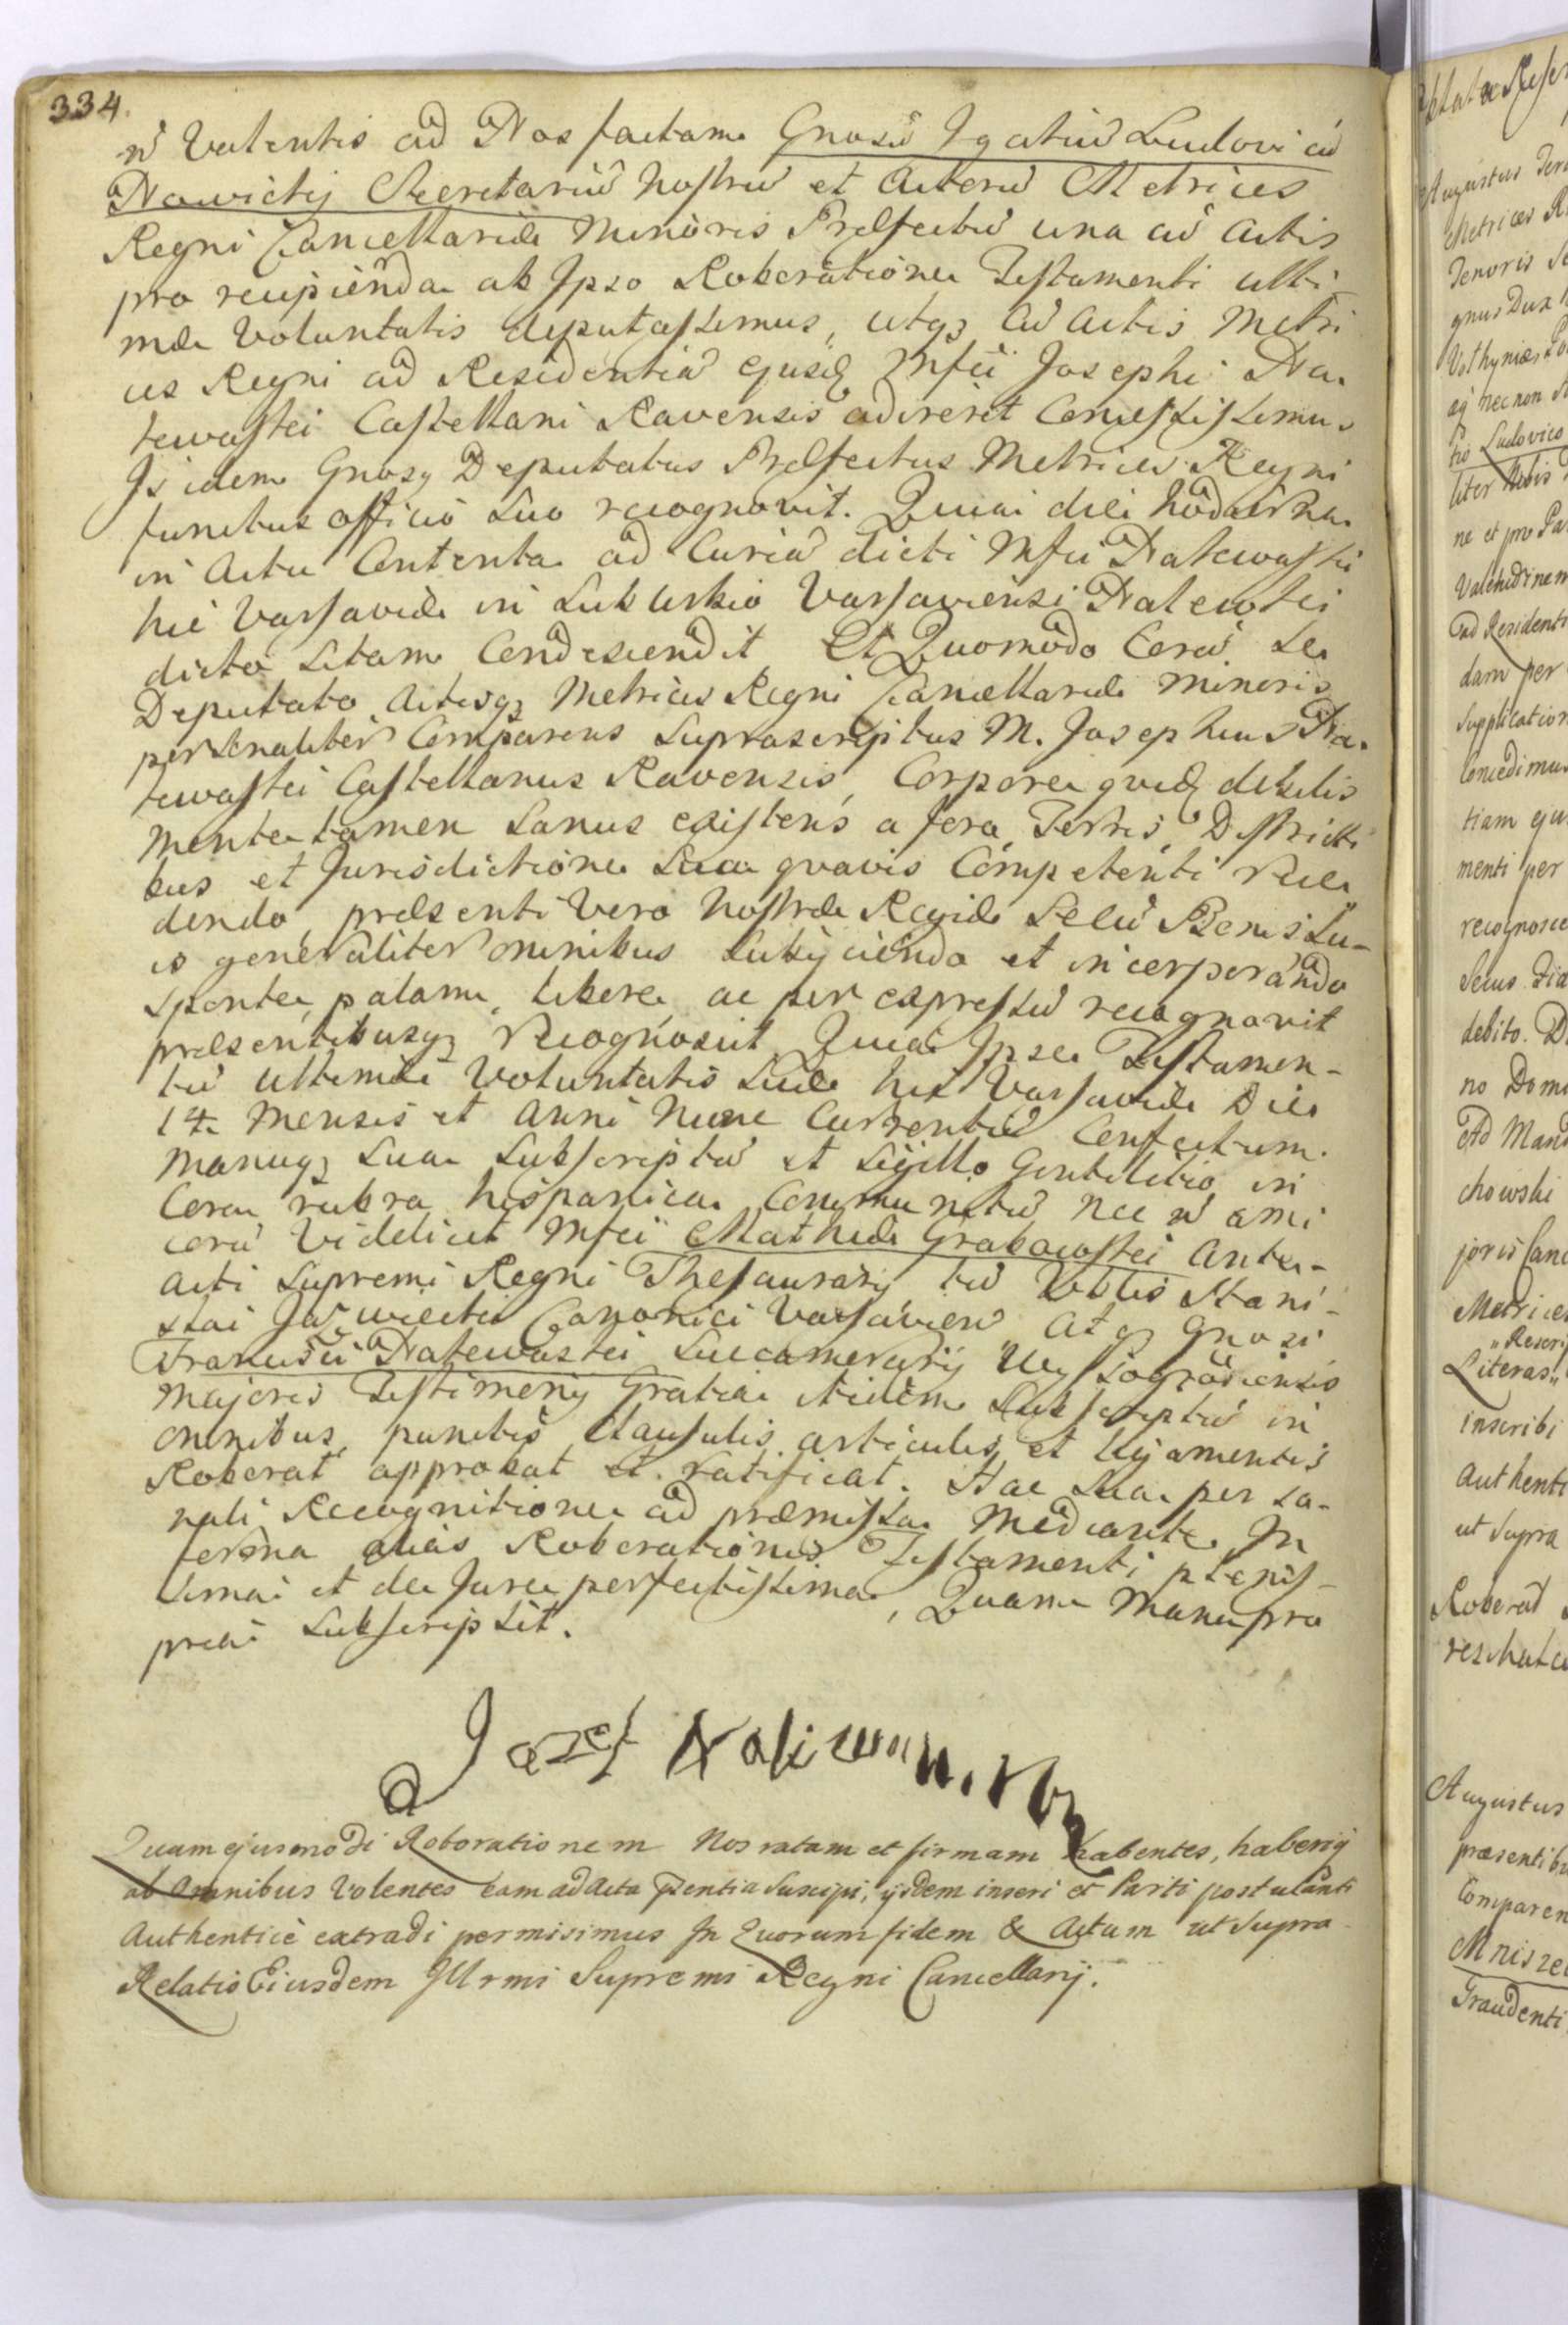 334.
n̄ Valentis ad Nos factam Gnosū Igatiū Ludovicū
Nawickij Secretariū Nostrū et Actorū Metrices
Regni Cancellariæ Minoris Præfectū una cū Actis
pro recipienda ab Ipso Roboratione Testamenti ulti
mæ Voluntatis deputassemus, utqz cū Actis Metri
ces Regni ad Residentiā ejusdē Mfci Josephi Na-
kwaski Castellani Ravensis adireret Concessissemus
Is idem Gnosq Deputatus Præfectus Metrices Regni
functus officio Suo recognovit. Quia die hodierna
in Actu Contenta ad Curiā dicti Mfci Nakwaski
hic Varsaviæ in Varsaviensi
dicto Sitam Condescendit Et Quomodo Corā Se
Deputato Actisqz Metrices Regni Cancellariæ Minoris
personaliter Comparens Suprascriptus M. Josephus Na-
kwaski Castellanus Ravensis, Corpore quidē debilis
Mente tamen Sanus existens a foro, Terris, Districti
bus et Jurisdictione Sua quavis Competenti rece
dendo, præsenti Vero Nostræ Regiæ Se cū Bonis Su-
is generaliter omnibus Subijciendo et incorporando
sponte, palam, libere, ac per expressū recognovit
præsentibusqz Recognoscit Quia Ipse Testamen-
tū ultimæ Voluntatis Suæ hic Varsaviæ Die
14 Mensis et Anni Nunc Currentiū Confectum
Manuqz Sua Subscriptū et Sigillo Gentilitio in
Cera rubra hispanica Communitū Nec n̄ ami
corū Videlicet Mfci Mathiæ Grabowski Ante-
acti Supremi Regni Thesaurarij tū Vblis Stani-
slai Canonici Varsavien Atqz Gnosi
Francisci Nakwaski Succamerarij Vyssogrodiensis
Majoris Testimonij Gratia itidem Subscriptū in
omnibus punctis Clausulis articulis et Ligamentis
Roborat approbat et ratificat. Hac Sua perso-
nali Recognitione ad præmissa Mediante In
forma alias Roborationis Testamenti plenis-
sima et de Jure perfectissima, Quam Manu pro
pria Subscripsit.
Jozef Nakwaski
Quam ejusmodi Roborationem Nos ratam et firmam habentes, haberiq
ab Omnibus Volentes eam ad Acta pzentia Suscipi, ijsdem inseri et Parti postulanti
Authenticè extradi permisimus In Quorum fidem & Actum ut Supra
Relatio Eiusdem Jllrmi Supremi Regni Cancellarij.
Augustus
Metrices
Tenoris
gnus Dux
Volhyniæ
Ludovico
liter Nobis
ne et pro
ad Residenti
dam per
Supplication
Concedimus
tiam eju
menti per
recognosce
debito.
no Domi
Ad Mand
chowski
joris Canc
Metrices
Literas
inscribi
Authenti
ut Supra
Roborat
Augustus
præsentibu
Comparen
Mniszec
Graudenti